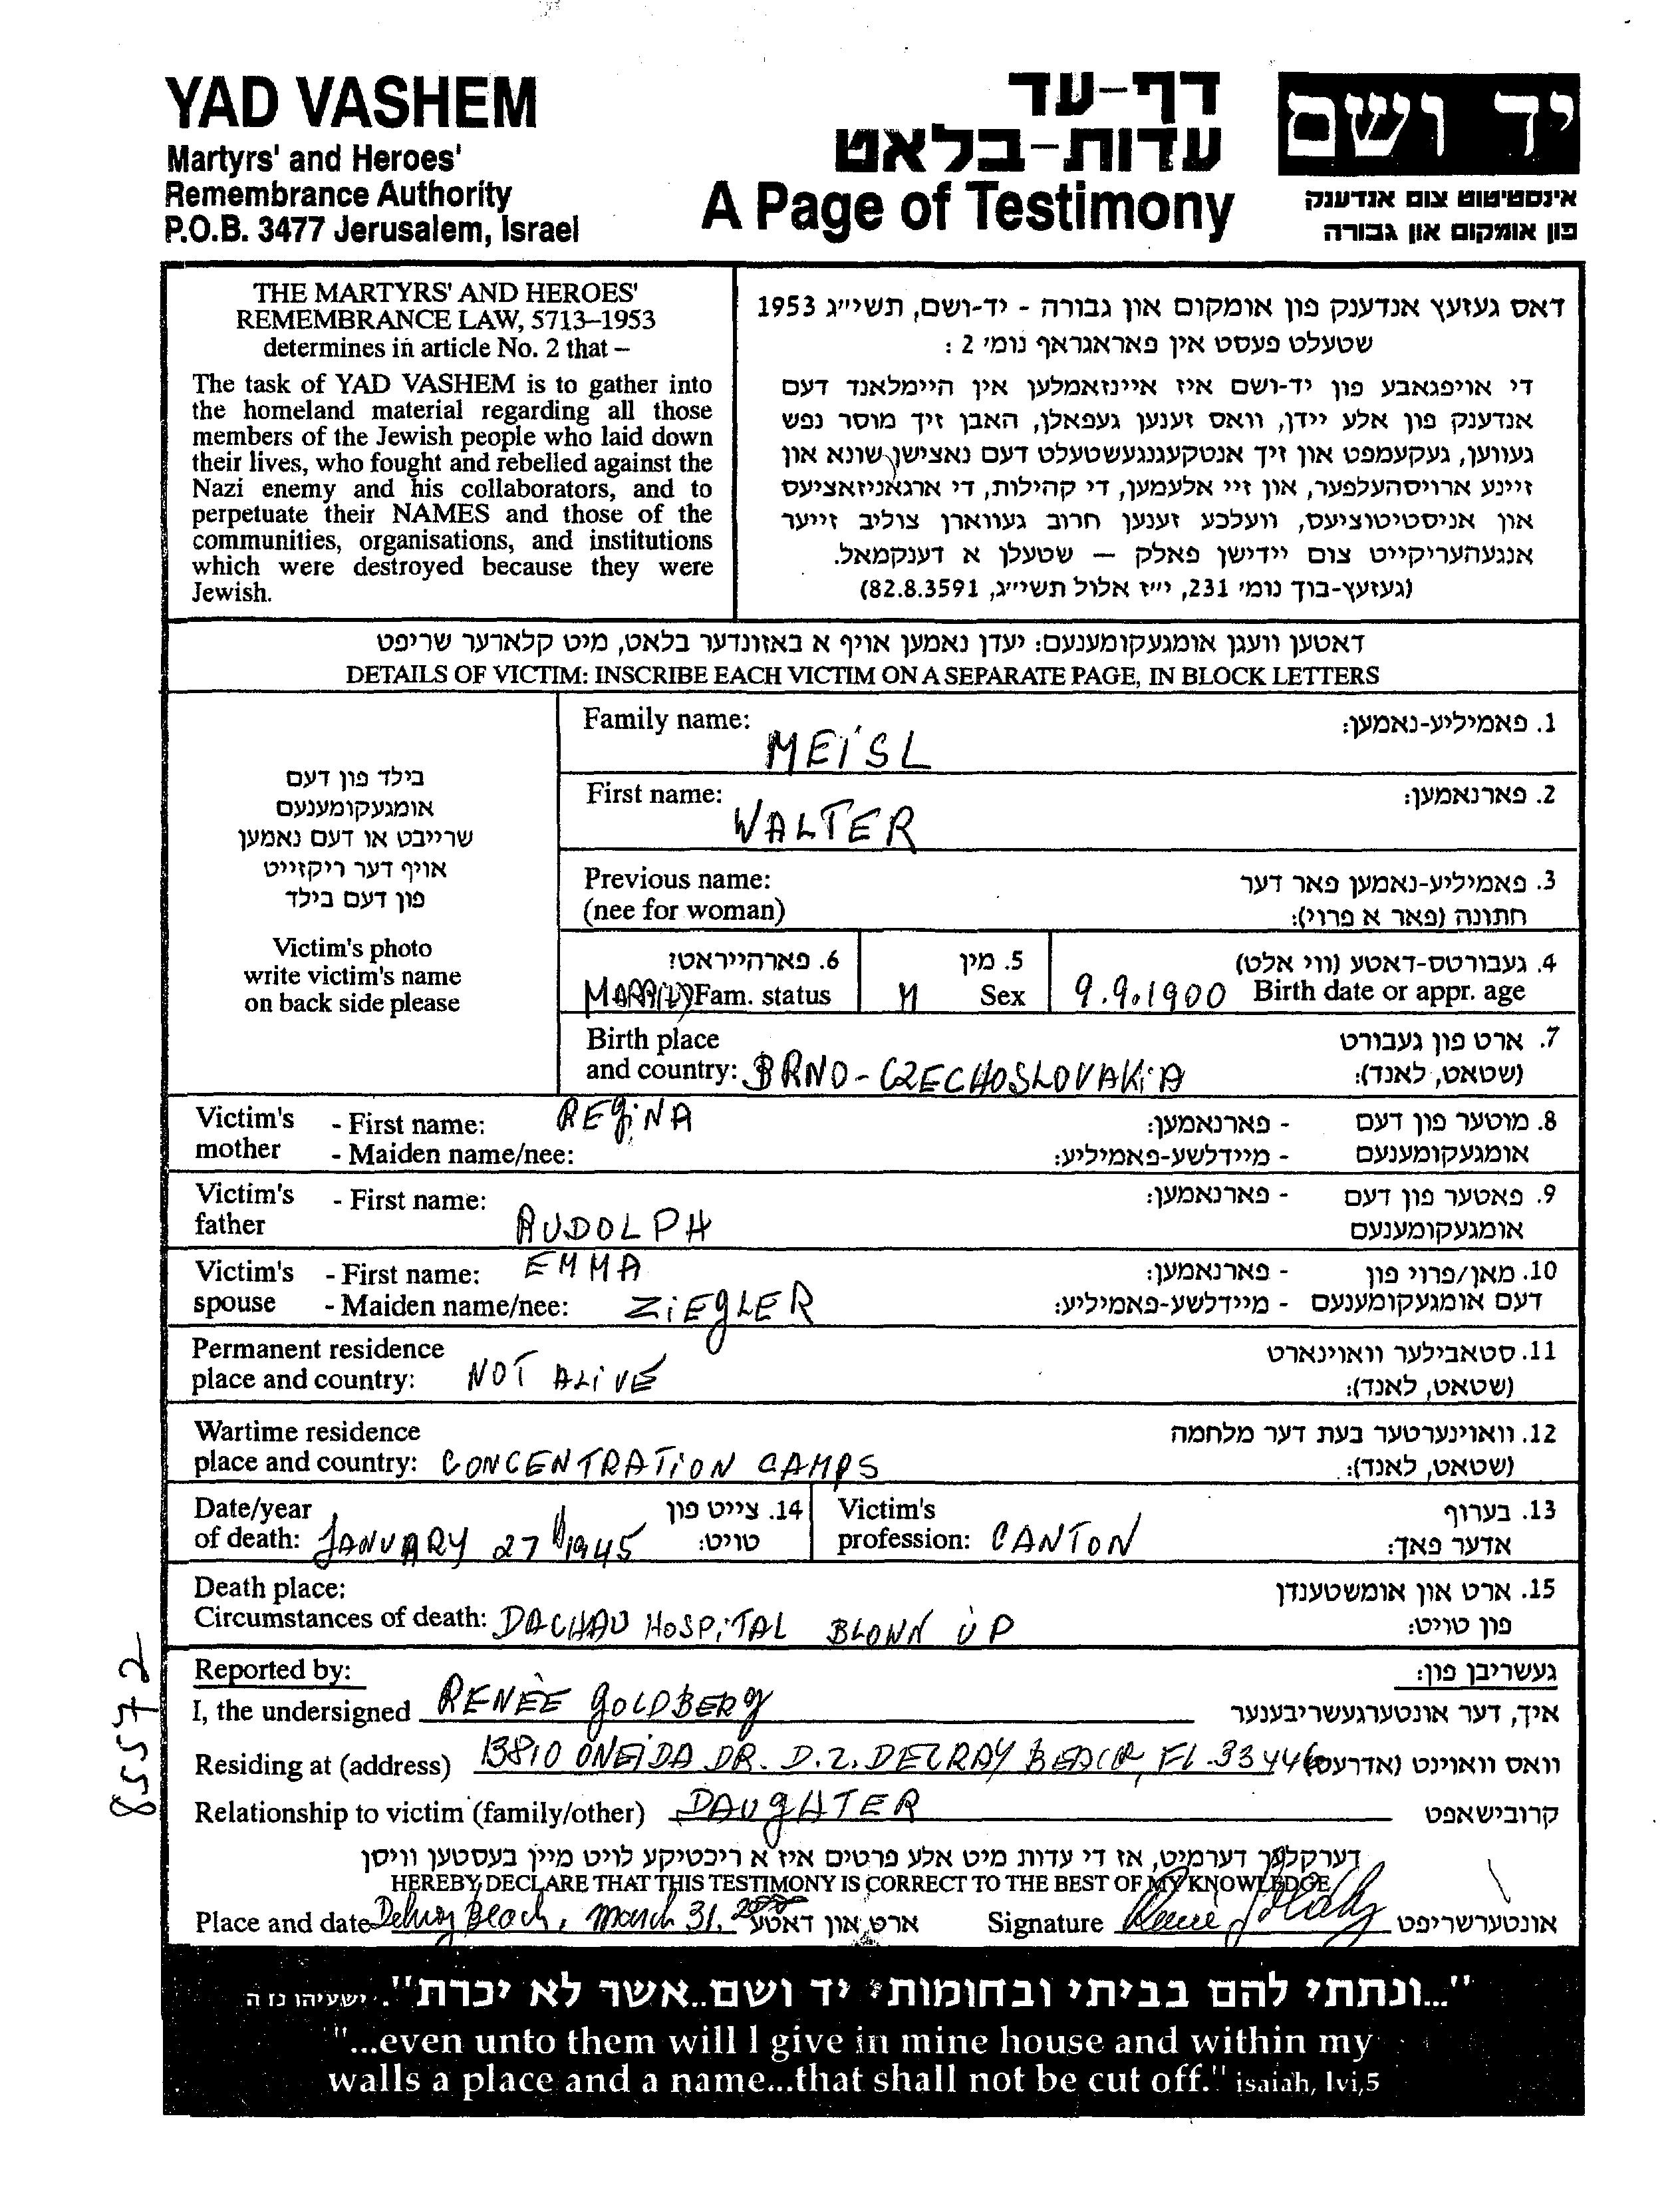 YAD VASHEM
Martyrs' and Heroes'
Remembrance Authority
P.O.B. 3477 Jerusalem, Israel
דף-עד
עדות-בלאט
A Page of Testimony
יד ושם
אינסטיטוט צום אנדענק
פון אומקום און גבורה
THE MARTYRS' AND HEROES'
REMEMBRANCE LAW, 5713–1953
determines in article No. 2 that –
The task of YAD VASHEM is to gather into
the homeland material regarding all those
members of the Jewish people who laid down
their lives, who fought and rebelled against the
Nazi enemy and his collaborators, and to
perpetuate their NAMES and those of the
communities, organisations, and institutions
which were destroyed because they were
Jewish.
דאס געזעץ אנדענק פון אומקום און גבורה - יד-ושם, תשי״ג 1953
שטעלט פעסט אין פאראגראף נומ׳ 2 :
די אויפגאבע פון יד-ושם איז איינזאמלען אין היימלאנד דעם
אנדענק פון אלע יידן, וואס זענען געפאלן, האבן זיך מוסר נפש
געווען, געקעמפט און זיך אנטקעגנגעשטעלט דעם נאצישן שונא און
זיינע ארויסהעלפער, און זיי אלעמען, די קהילות, די ארגאניזאציעס
און אניסטיטוציעס, וועלכע זענען חרוב געווארן צוליב זייער
אנגעהעריקייט צום יידישן פאלק — שטעלן א דענקמאל.
(געזעץ-בוך נומ׳ 231, י״ז אלול תשי״ג, 82.8.3591)
דאטען וועגן אומגעקומענעם: יעדן נאמען אויף א באזונדער בלאט, מיט קלארער שריפט
DETAILS OF VICTIM: INSCRIBE EACH VICTIM ON A SEPARATE PAGE, IN BLOCK LETTERS
בילד פון דעם
אומגעקומענעם
שרייבט או דעם נאמען
אויף דער ריקזייט
פון דעם בילד
Victim's photo
write victim's name
on back side please
Family name: MEISL 1. פאמיליע-נאמען:
First name: WALTER 2. פארנאמען:
Previous name: 3. פאמיליע-נאמען פאר דער
(nee for woman) חתונה (פאר א פרוי):
6. פארהייראט? 5. מין 4. געבורטס-דאטע (ווי אלט)
Fam. status M Sex 9.9.1900 Birth date or appr. age
Birth place 7. ארט פון געבורט
and country: BRNO - CZECHOSLOVAKiA (שטאט, לאנד):
Victim's - First name: REGiNA - פארנאמען: 8. מוטער פון דעם
mother - Maiden name/nee: - מיידלשע-פאמיליע: אומגעקומענעם
Victim's - First name: RUDOLPH - פארנאמען: 9. פאטער פון דעם
father אומגעקומענעם
Victim's - First name: EMMA - פארנאמען: 10. מאן/פרוי פון
spouse - Maiden name/nee: ZiEGLER - מיידלשע-פאמיליע: דעם אומגעקומענעם
Permanent residence 11. סטאבילער וואוינארט
place and country: NOT ALiVE (שטאט, לאנד):
Wartime residence 12. וואוינערטער בעת דער מלחמה
place and country: CONCENTRATiON CAMPS (שטאט, לאנד):
Date/year 14. צייט פון Victim's 13. בערוף
of death: JANUARY 27 1945 טויט: profession: CANTON אדער פאך:
Death place: 15. ארט און אומשטענדן
Circumstances of death: DACHAU HOSPiTAL BLOWN UP פון טויט:
85572
Reported by: געשריבן פון:
I, the undersigned RENÈE GOLDBERG איך, דער אונטערגעשריבענער
Residing at (address) 13810 ONEiDA DR. D.2. DELRAY BEACH, FL. 33446 וואס וואוינט (אדרעס)
Relationship to victim (family/other) DAUGHTER קרובישאפט
דערקלער דערמיט, אז די עדות מיט אלע פרטים איז א ריכטיקע לויט מיין בעסטען וויסן
HEREBY DECLARE THAT THIS TESTIMONY IS CORRECT TO THE BEST OF MY KNOWLEDGE
Place and date Delray Beach, March 31. 2000 ארט און דאטע Signature אונטערשריפט
"...ונתתי להם בביתי ובחומותי יד ושם..אשר לא יכרת". ישעיהו נז ה
"...even unto them will I give in mine house and within my
walls a place and a name...that shall not be cut off." isaiah, lvi,5